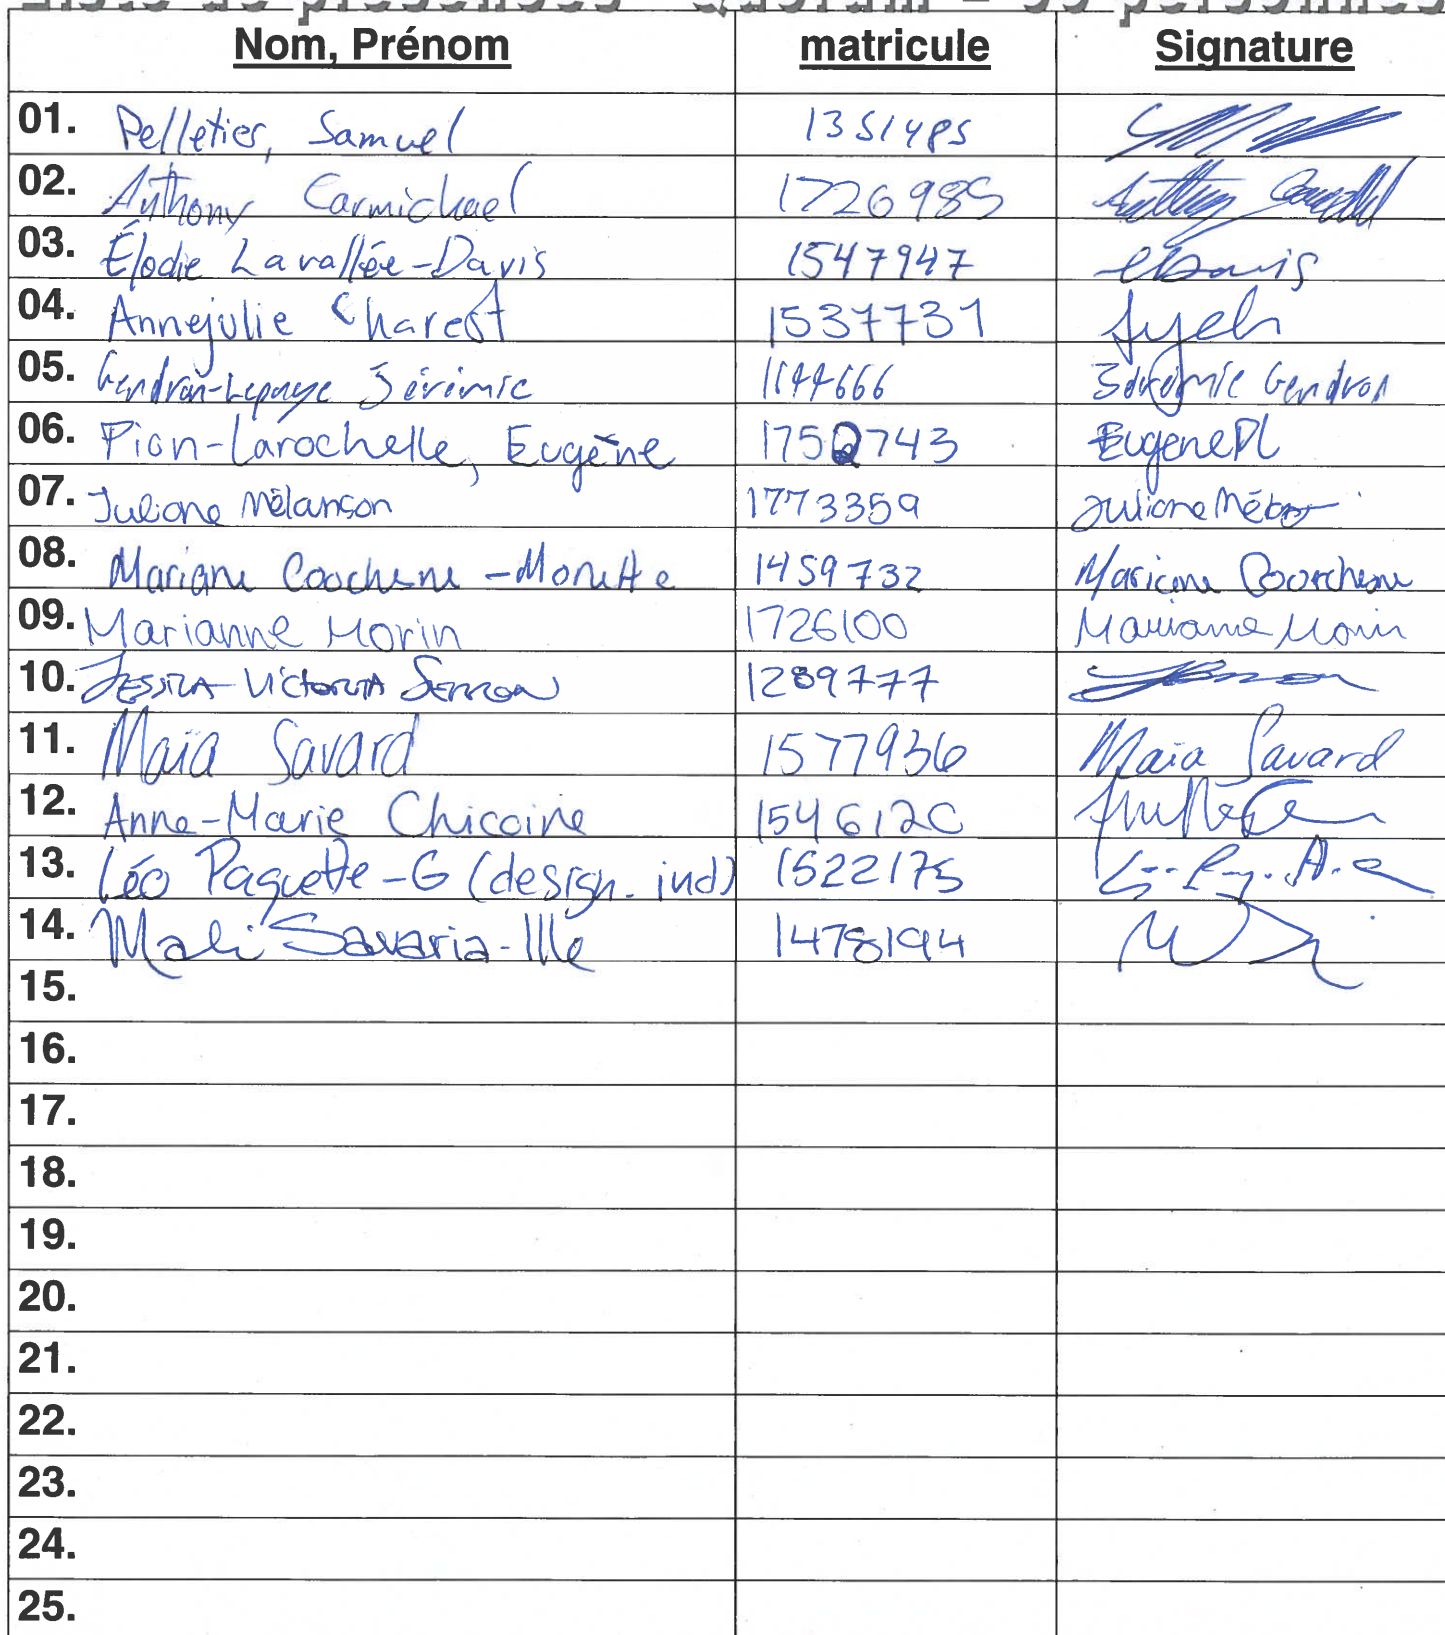 Liste de présences - Quorum = 30 personnes
Nom, Prénom matricule Signature
01. Pelletier, Samuel 1351485
02. Anthony Carmichael 1726985
03. Élodie Lavallée-Davis 1547947 eDavis
04. Annejulie Charest 1537731
05. Gendron-Lepage Jérémie 1144666 Jérémie Gendron
06. Pion-Larochelle, Eugène 1750743 EugenePL
07. Juliane Mélançon 1773359
08. Mariane Courchesne-Monette 1459732 Mariane Courchesne
09. Marianne Morin 1726100 Marianne Morin
10. JESSICA-VICTORIA 1289777
11. Maïa Savard 1577936 Maïa Savard
12. Anne-Marie Chicoine 1546120
13. Léo Paquette-G (design. ind) 1522175
14. Mali Savaria-Ille 1478194
15.
16.
17.
18.
19.
20.
21.
22.
23.
24.
25.